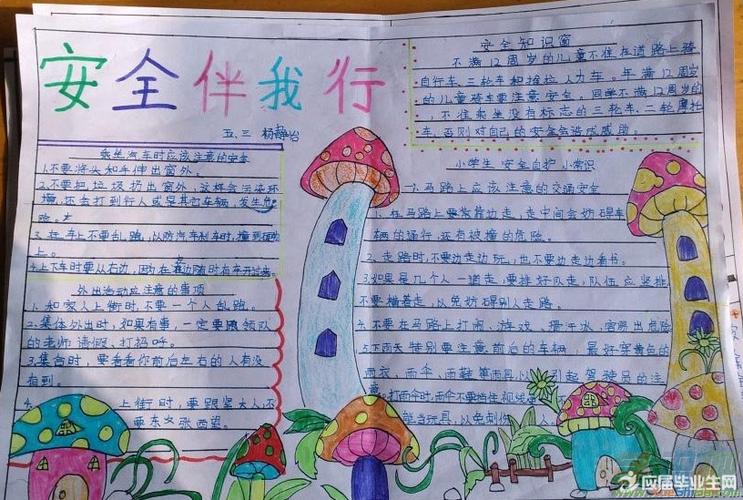 安全伴我行
五、三 杨静怡
乘坐汽车时应该注意的安全
1.不要将头和手伸出窗外。
2.不要把垃圾扔出窗外，这样会污染环
境，还会打到行人或是其它车辆，发生危
3.在车上不要乱跑，以防汽车刹车时，撞到
上。
4.上下车时要从右边，因为在
外出活动应注意的事项
1、和家人上街时，不要一个人乱跑。
2、集体外出时，如果有事，一定要跟领队
的老师请假、打招呼。
3、集合时，要看看你前后左右的人有没
有到。
4、 上街时，要跟紧大人，不
要东文张西望。
安全知识窗
不满12周岁的儿童不准在道路上骑
自行车、三轮车和推拉人力车。年满12周岁
的儿童骑车要注意安全，同学不满12周岁的
不准乘坐没有标志的三轮车、二轮摩托
车，否则对自己的安全会造成威胁。
小学生安全自护小常识
一、马路上应该注意的交通安全
1、在马路上要靠边走，走中间会妨碍车
辆的通行，还有被撞的危险。
2、走路时，不要边走边玩，也不要边走边看书。
3、如果是几个人一道走，要排好队走，队伍应竖排，
不要横着走，以免妨碍别人走路。
4、不要在马路上打闹、游戏、 容易出危险
5、下雨天特别要注意前后的车辆，最好穿黄色的
雨衣、雨伞、雨鞋等雨具 引起驾驶员的注
意。打雨伞时，雨伞不要挡住视线
当玩具，以免
应届毕业生网